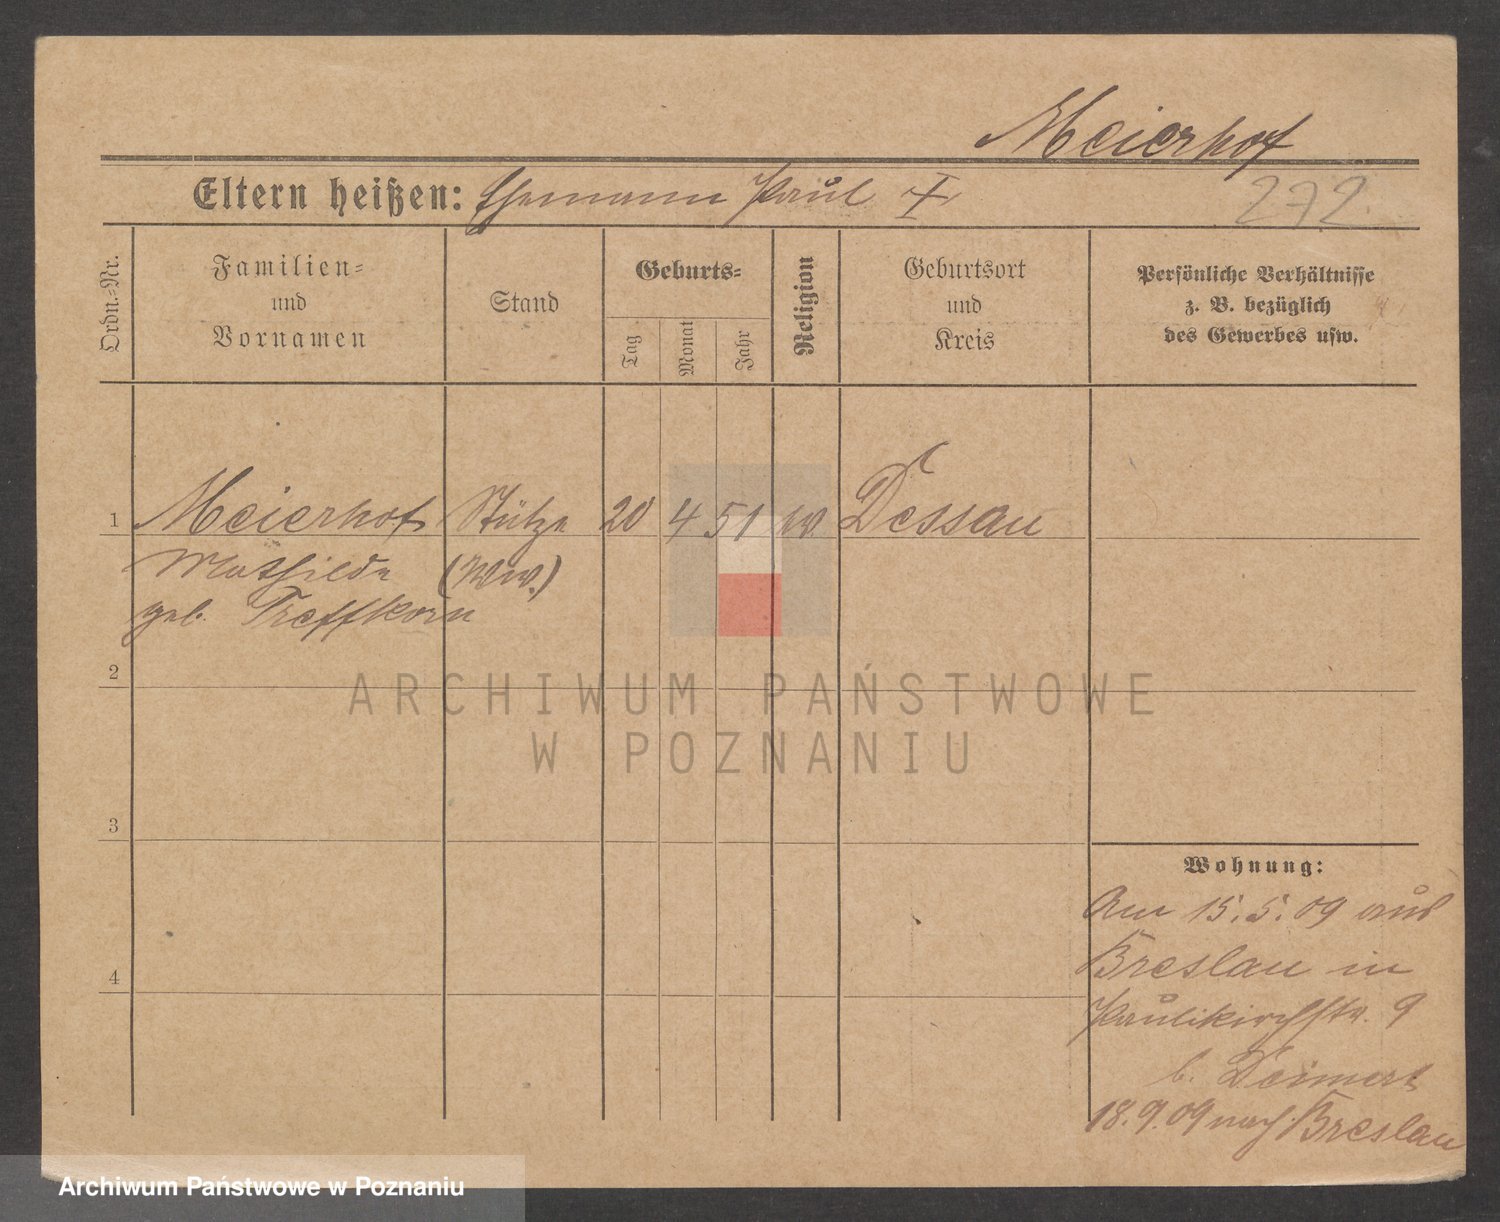 Meierhof
Eltern heißen: Ehemann Paul +
272
Ordn.-Nr.
Familien-
und
Vornamen
Stand
Geburts-
Tag
Monat
Jahr
Religion
Geburtsort
und
Kreis
Persönliche Verhältnisse
z. B. bezüglich
des Gewerbes usw.
1 Meierhof Stütze 20 4 51 Dessau
Mathilde (Ww.)
geb. Treffkorn
2
ARCHIWUM PAŃSTWOWE
W POZNANIU
3
Wohnung:
Am 15.5.09 aus
Breslau in
4
Paulikirchstr. 9
b.
18.9.09 nach Breslau
Archiwum Państwowe w Poznaniu